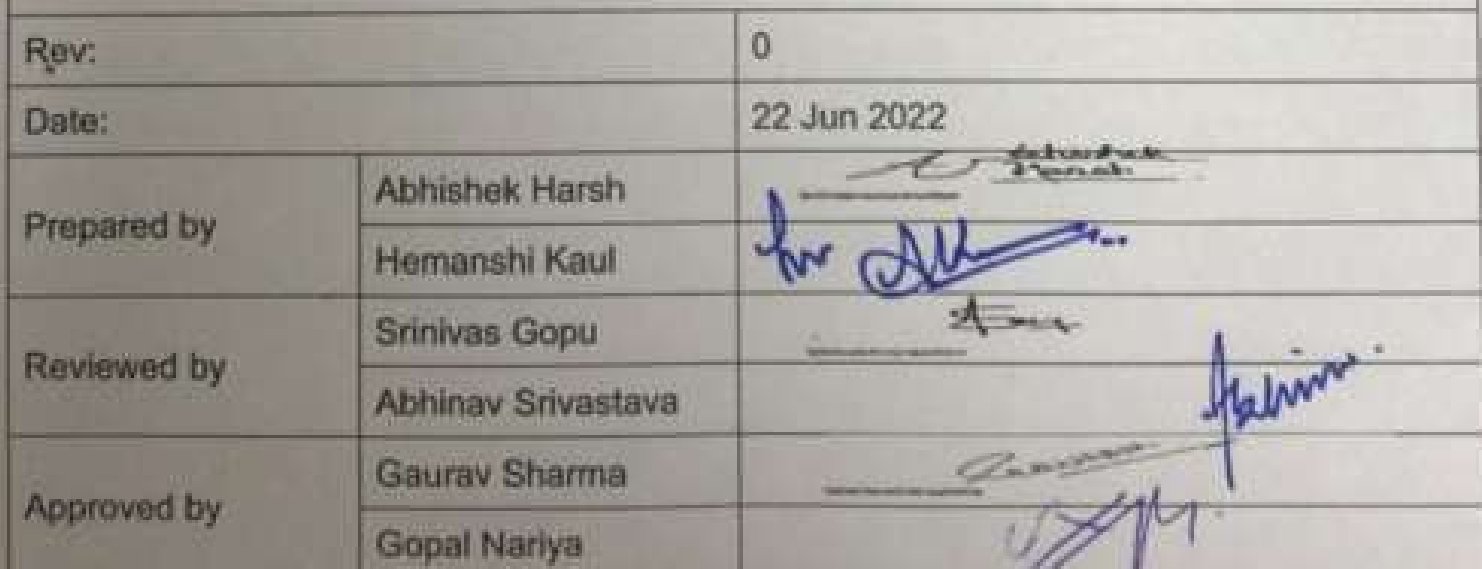 Rev: 0
Date: 22 Jun 2022
Prepared by
Abhishek Harsh
Hemanshi Kaul for AK
Reviewed by
Srinivas Gopu
Abhinav Srivastava Abhinav
Approved by
Gaurav Sharma
Gopal Nariya